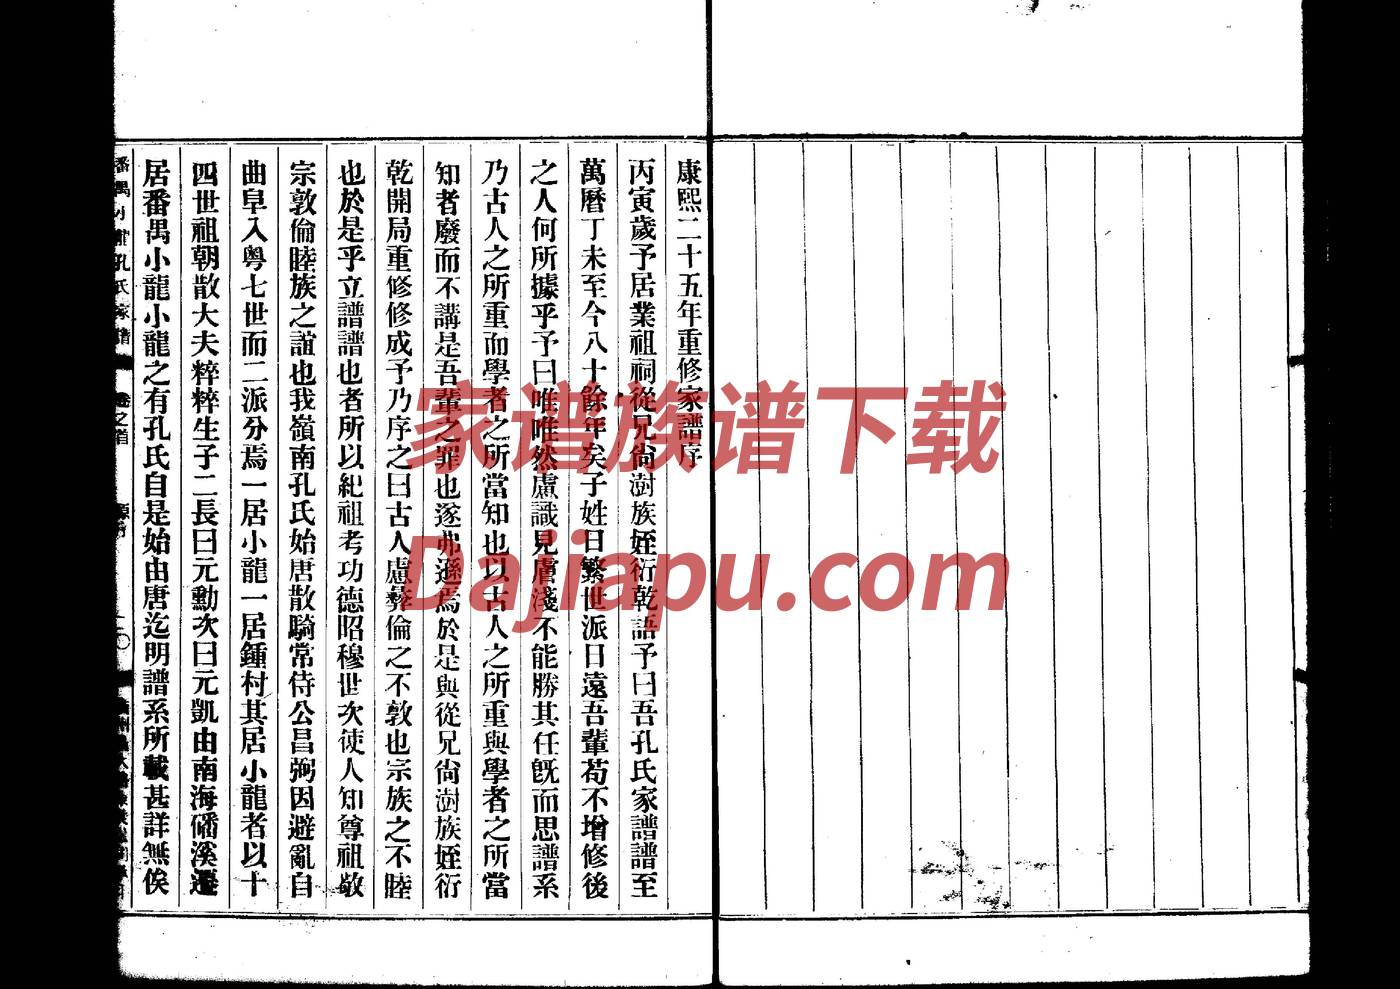 康熙二十五年重修家譜序
丙寅歲予居業祖祠從兄尙澍族姪衍乾語予曰吾孔氏家譜譜至
萬曆丁未至今八十餘年矣子姓日繁世派日遠吾輩苟不增修後
之人何所據乎予曰唯唯然慮識見膚淺不能勝其任旣而思譜系
乃古人之所重而學者之所當知也以古人之所重與學者之所當
知者廢而不講是吾輩之罪也遂弗遜焉於是與從兄尙澍族姪衍
乾開局重修修成予乃序之曰古人慮彝倫之不敦也宗族之不睦
也於是乎立譜譜也者所以紀祖考功德昭穆世次使人知尊祖敬
宗敦倫睦族之誼也我嶺南孔氏始唐散騎常侍公昌弼因避亂自
曲阜入粵七世而二派分焉一居小龍一居鍾村其居小龍者以十
四世祖朝散大夫粹粹生子二長曰元勳次曰元凱由南海磻溪遷
居番禺小龍小龍之有孔氏自是始由唐迄明譜系所載甚詳無俟
番禺小龍孔氏家譜 卷之首
家谱族谱下载
Dajiapu.com